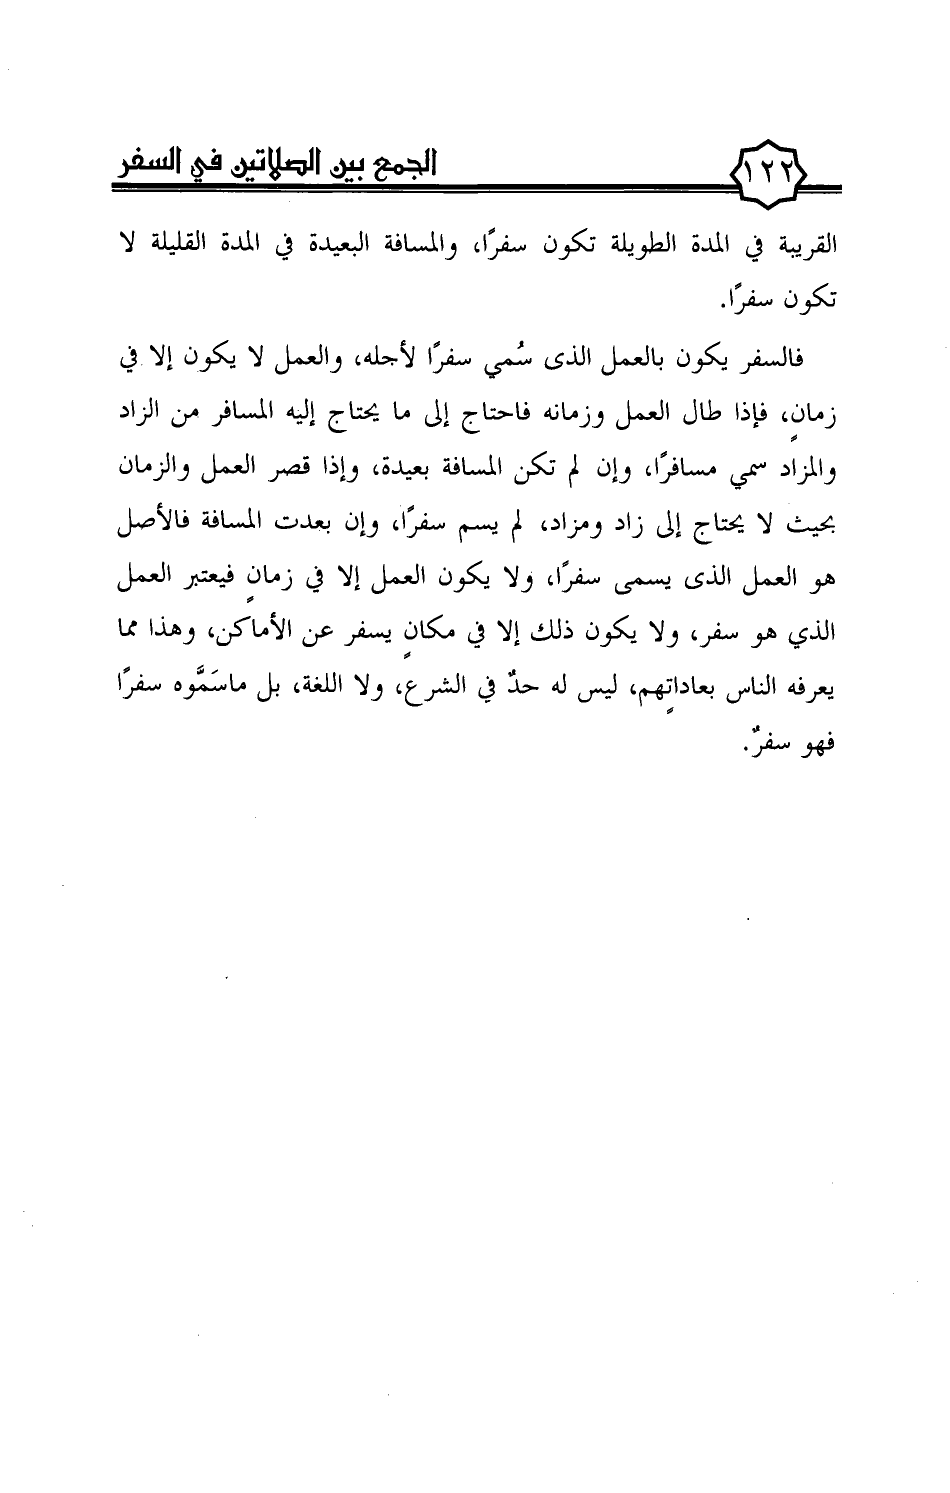 ١٢٢
الجمع بين الصلاتين في السفر
القريبة في المدة الطويلة تكون سفرًا، والمسافة البعيدة في المدة القليلة لا
تكون سفرًا.
فالسفر يكون بالعمل الذى سُمي سفرًا لأجله، والعمل لا يكون إلا في
زمانٍ، فإذا طال العمل وزمانه فاحتاج إلى ما يحتاج إليه المسافر من الزاد
والمزاد سمي مسافرًا، وإن لم تكن المسافة بعيدة، وإذا قصر العمل والزمان
بحيث لا يحتاج إلى زاد ومزاد، لم يسم سفرًا، وإن بعدت المسافة فالأصل
هو العمل الذى يسمى سفرًا، ولا يكون العمل إلا في زمانٍ فيعتبر العمل
الذي هو سفر، ولا يكون ذلك إلا في مكانٍ يسفر عن الأماكن، وهذا مما
يعرفه الناس بعاداتٍهم، ليس له حدٌ في الشرع، ولا اللغة، بل ماسَمَّوه سفرًا
فهو سفرٌ.